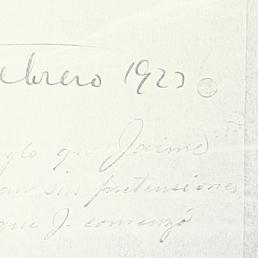 ebrero 192
que Jaime
sus pretensiones
que J. comenzó